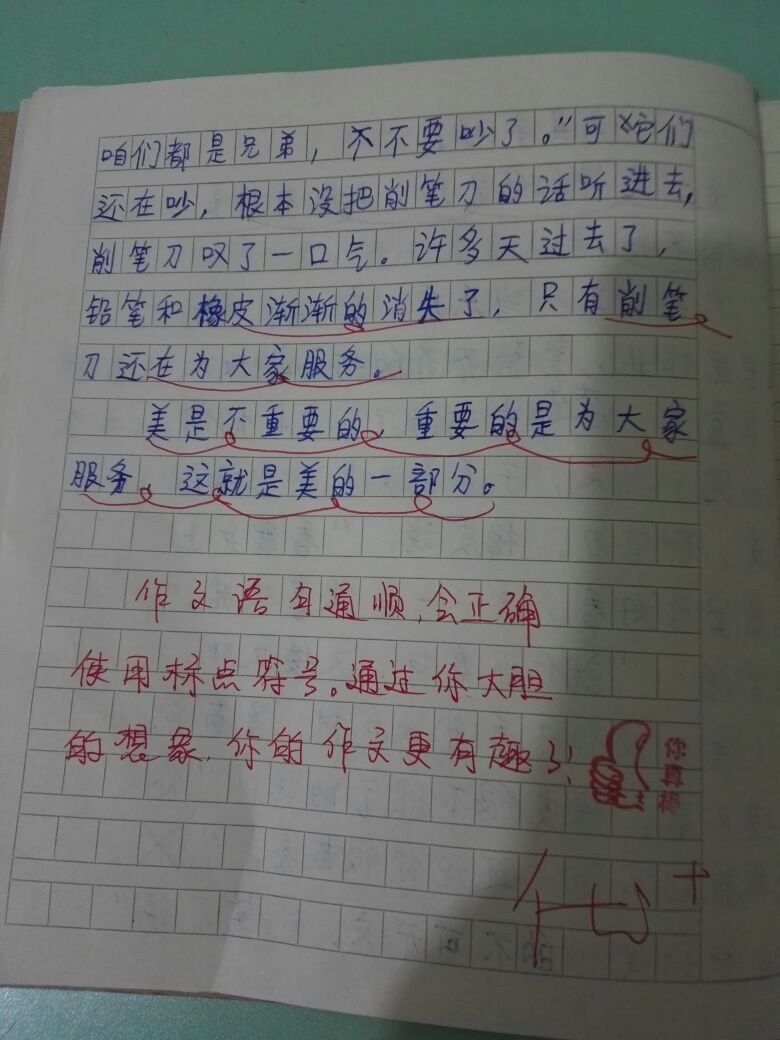 咱们都是兄弟，不不要吵了。”可它们
还在吵，根本没把削笔刀的话听进去，
削笔刀叹了一口气。许多天过去了，
铅笔和橡皮渐渐的消失了，只有削笔
刀还在为大家服务。
美是不重要的，重要的是为大家
服务，这就是美的一部分。
作文语句通顺，会正确
使用标点符号。通过你大胆
的想象，你的作文更有趣了！
你真棒